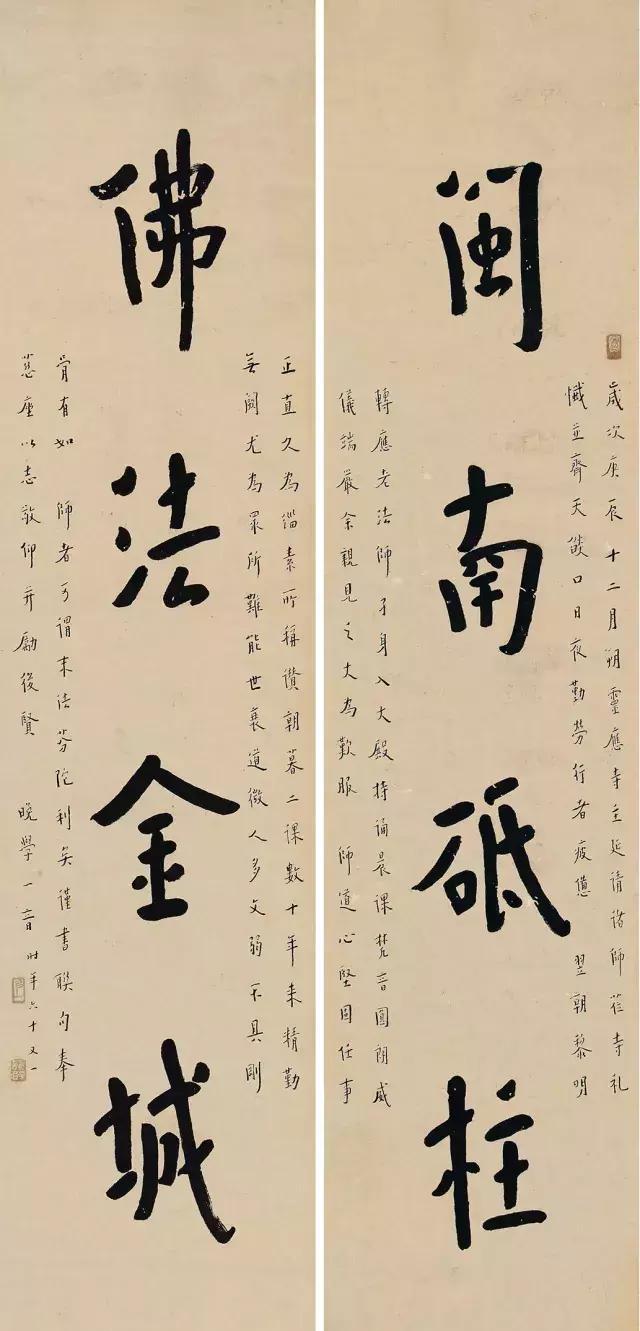 閩南砥柱
歲次庚辰十二月朔靈應寺主延請諸師蒞寺礼
懺並齊天燄口日夜勤勞行者疲憊 翌朝黎明
轉應老法師孑身入大殿持誦晨課梵音圓朗威
儀端嚴余親見之大為歎服 師道心堅固任事
佛法金城
正直久為緇素所稱讚朝暮二課數十年来精勤
无闕尤為眾所難能世衰道微人多文弱不具剛
骨有如 師者可謂末法芬陀利矣謹書聯句奉
慈座以志敬仰并勵後賢 晚學一音時年六十又一